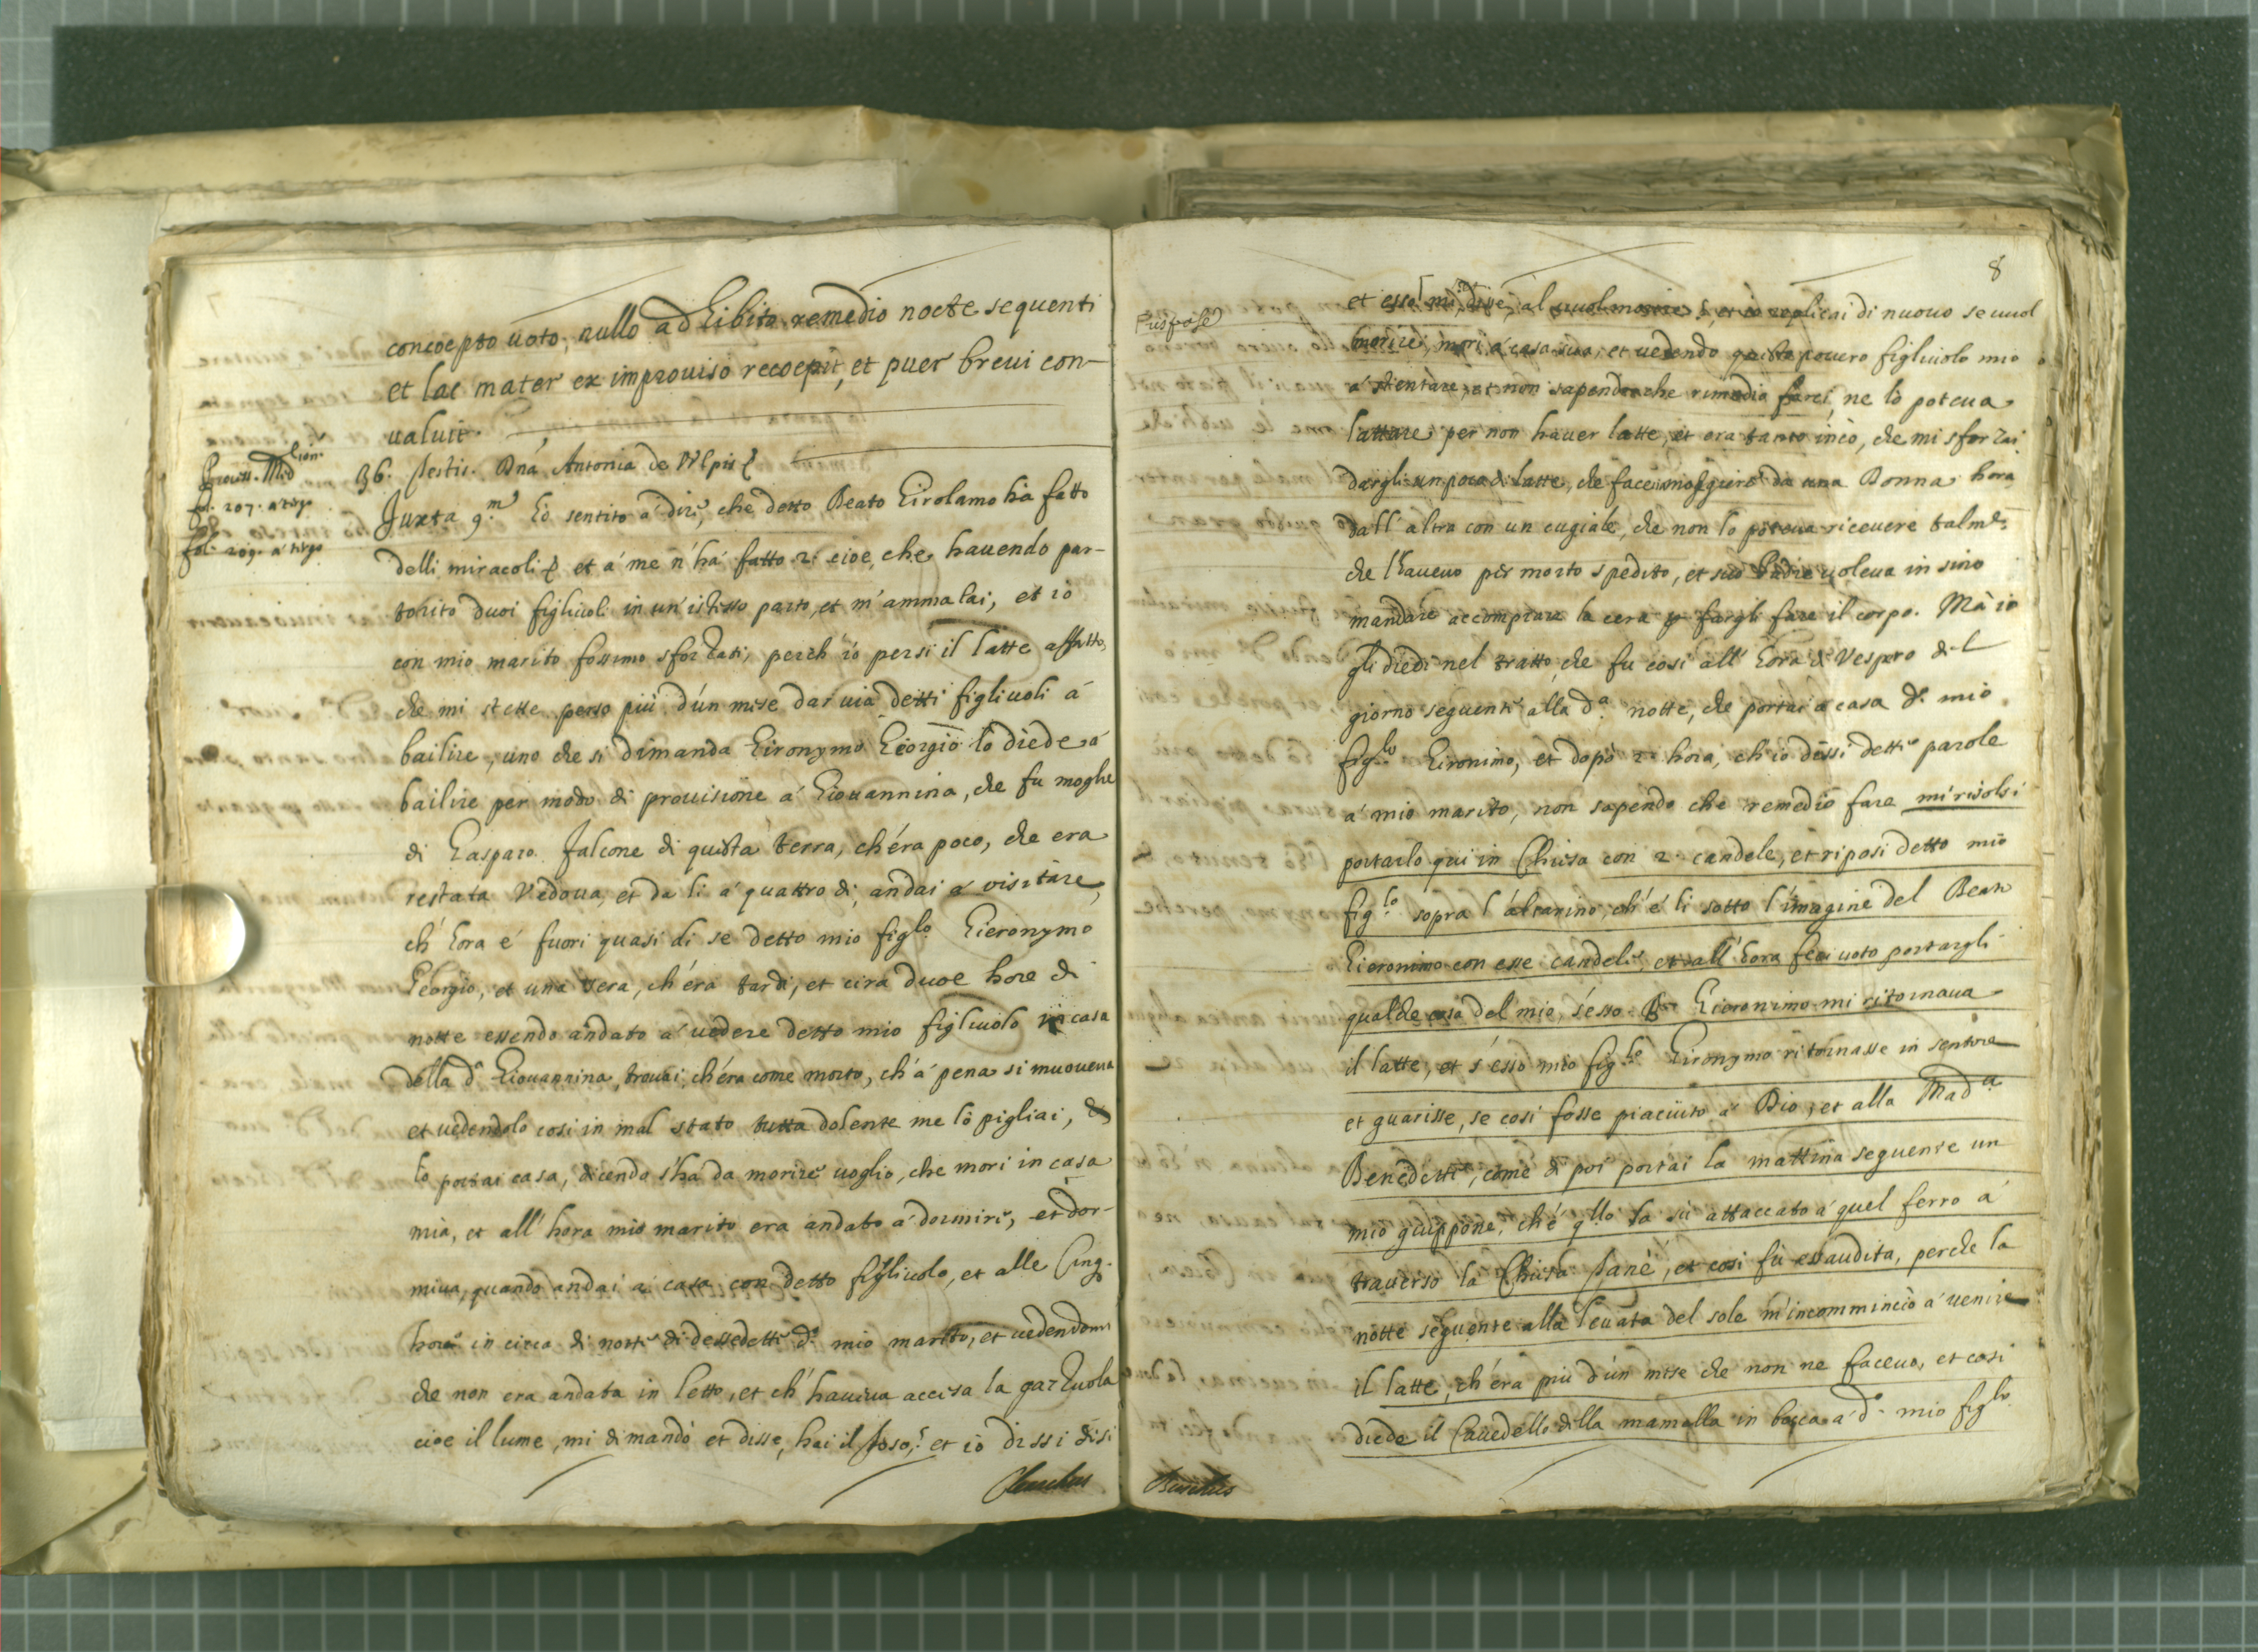 concoepto uoto, nullo adhibito remedio nocte sequenti
et lac mater ex improuiso recoepit, et puer breui con-
ualuit.
fol. 207. a tergo
fol. 209. a tergo
36. testis. Dna Antonia de Vlpis
Juxta 9.m Hò sentito à dire, che detto Beato Girolamo hà fatto
delli miracoli et à me n'hà fatto 2. cioe, che hauendo par-
torito duoi figliuoli in un'istesso parto, et m'ammalai, et io
con mio marito fossimo sforzati, perch'io persi il latte affatto,
che mi stette perso più d'un mese dar uia detti figliuoli à
bailire, uno che si dimanda Gironymo Georgio lo diede à
bailire per modo di prouisione à Giouannina, che fu moglie
di Gasparo Falcone di questa terra, ch'era poco, che era
restata Vedoua, et da li à quattro di, andai à visitare,
ch'hora è fuori quasi di se detto mio figlo. Gieronymo
Georgio, et una sera, ch'era tardi, et cira duoe hore di
notte essendo andato à uedere detto mio figliuolo in casa
della da. Giouannina, trouai, ch'era come morto, ch'à pena si muoueua
et uedendolo cosi in mal stato tutta dolente me lo pigliai, et
lo portai casa, dicendo s'hà da morire uoglio, che mori in casa
mia, et all'hora mio marito era andato à dormire, et dor-
miua, quando andai à casa con detto figliuolo, et alle Cinq.
hore in circa di notte di dessedette do. mio marito, et uedendomi
che non era andata in letto, et ch'haueua accesa la garzuola
cioe il lume, mi dimandò et disse, hai il toso? et io dissi di si
8
Rispose
et esso mi disse, al uuol morire? et io replicai di nuouo se uuol
morire, mori à casa sua, et uedendo questo pouero figliuolo mio
à stentare, et non sapendo che rimedio farci, ne lo poteua
lattare per non hauer latte, et era tanto incò, che mi sforzai
dargli un poco di latte, che faceuimo da una Donna hora
dall'altra con un cugiale, che non lo poteua riceuere talmte.
che l'haueuo per morto spedito, et suo Padre uoleua in sino
mandare accomprare la cera p fargli fare il corpo. Mà io
gli diedi nel tratto, che fu cosi all'hora di Vespro del
giorno seguente alla da. notte, che portai à casa do. mio
figlo. Gironimo, et dopò 2. hora, ch'io dissi dette parole
à mio marito, non sapendo che remedio fare mi risolsi
portarlo qui in Chiesa con 2. candele, et riposi detto mio
figlo. sopra l'altarino, ch'è li sotto l'imagine del Beato
Gieronimo con esse candele, et all'hora feci uoto portargli
qualche cosa del mio, s'esso Bto. Gieronimo mi ritornaua
il latte, et s'esso mio figlo. Gironymo ritornasse in sentore
et guarisse, se cosi fosse piaciuto à Dio, et alla Mada.
Benedetta, come di poi portai la mattina seguente un
mio giuppone, ch'è qllo la sù attaccato à quel ferro à
trauerso la Chiesa et cosi fù essaudita, perche la
notte seguente alla leuata del sole m'incommincio à uenire
il latte, ch'era più d'un mese che non ne faceuo, et cosi
diede il Cauedello della mamella in bocca à do. mio figlo.